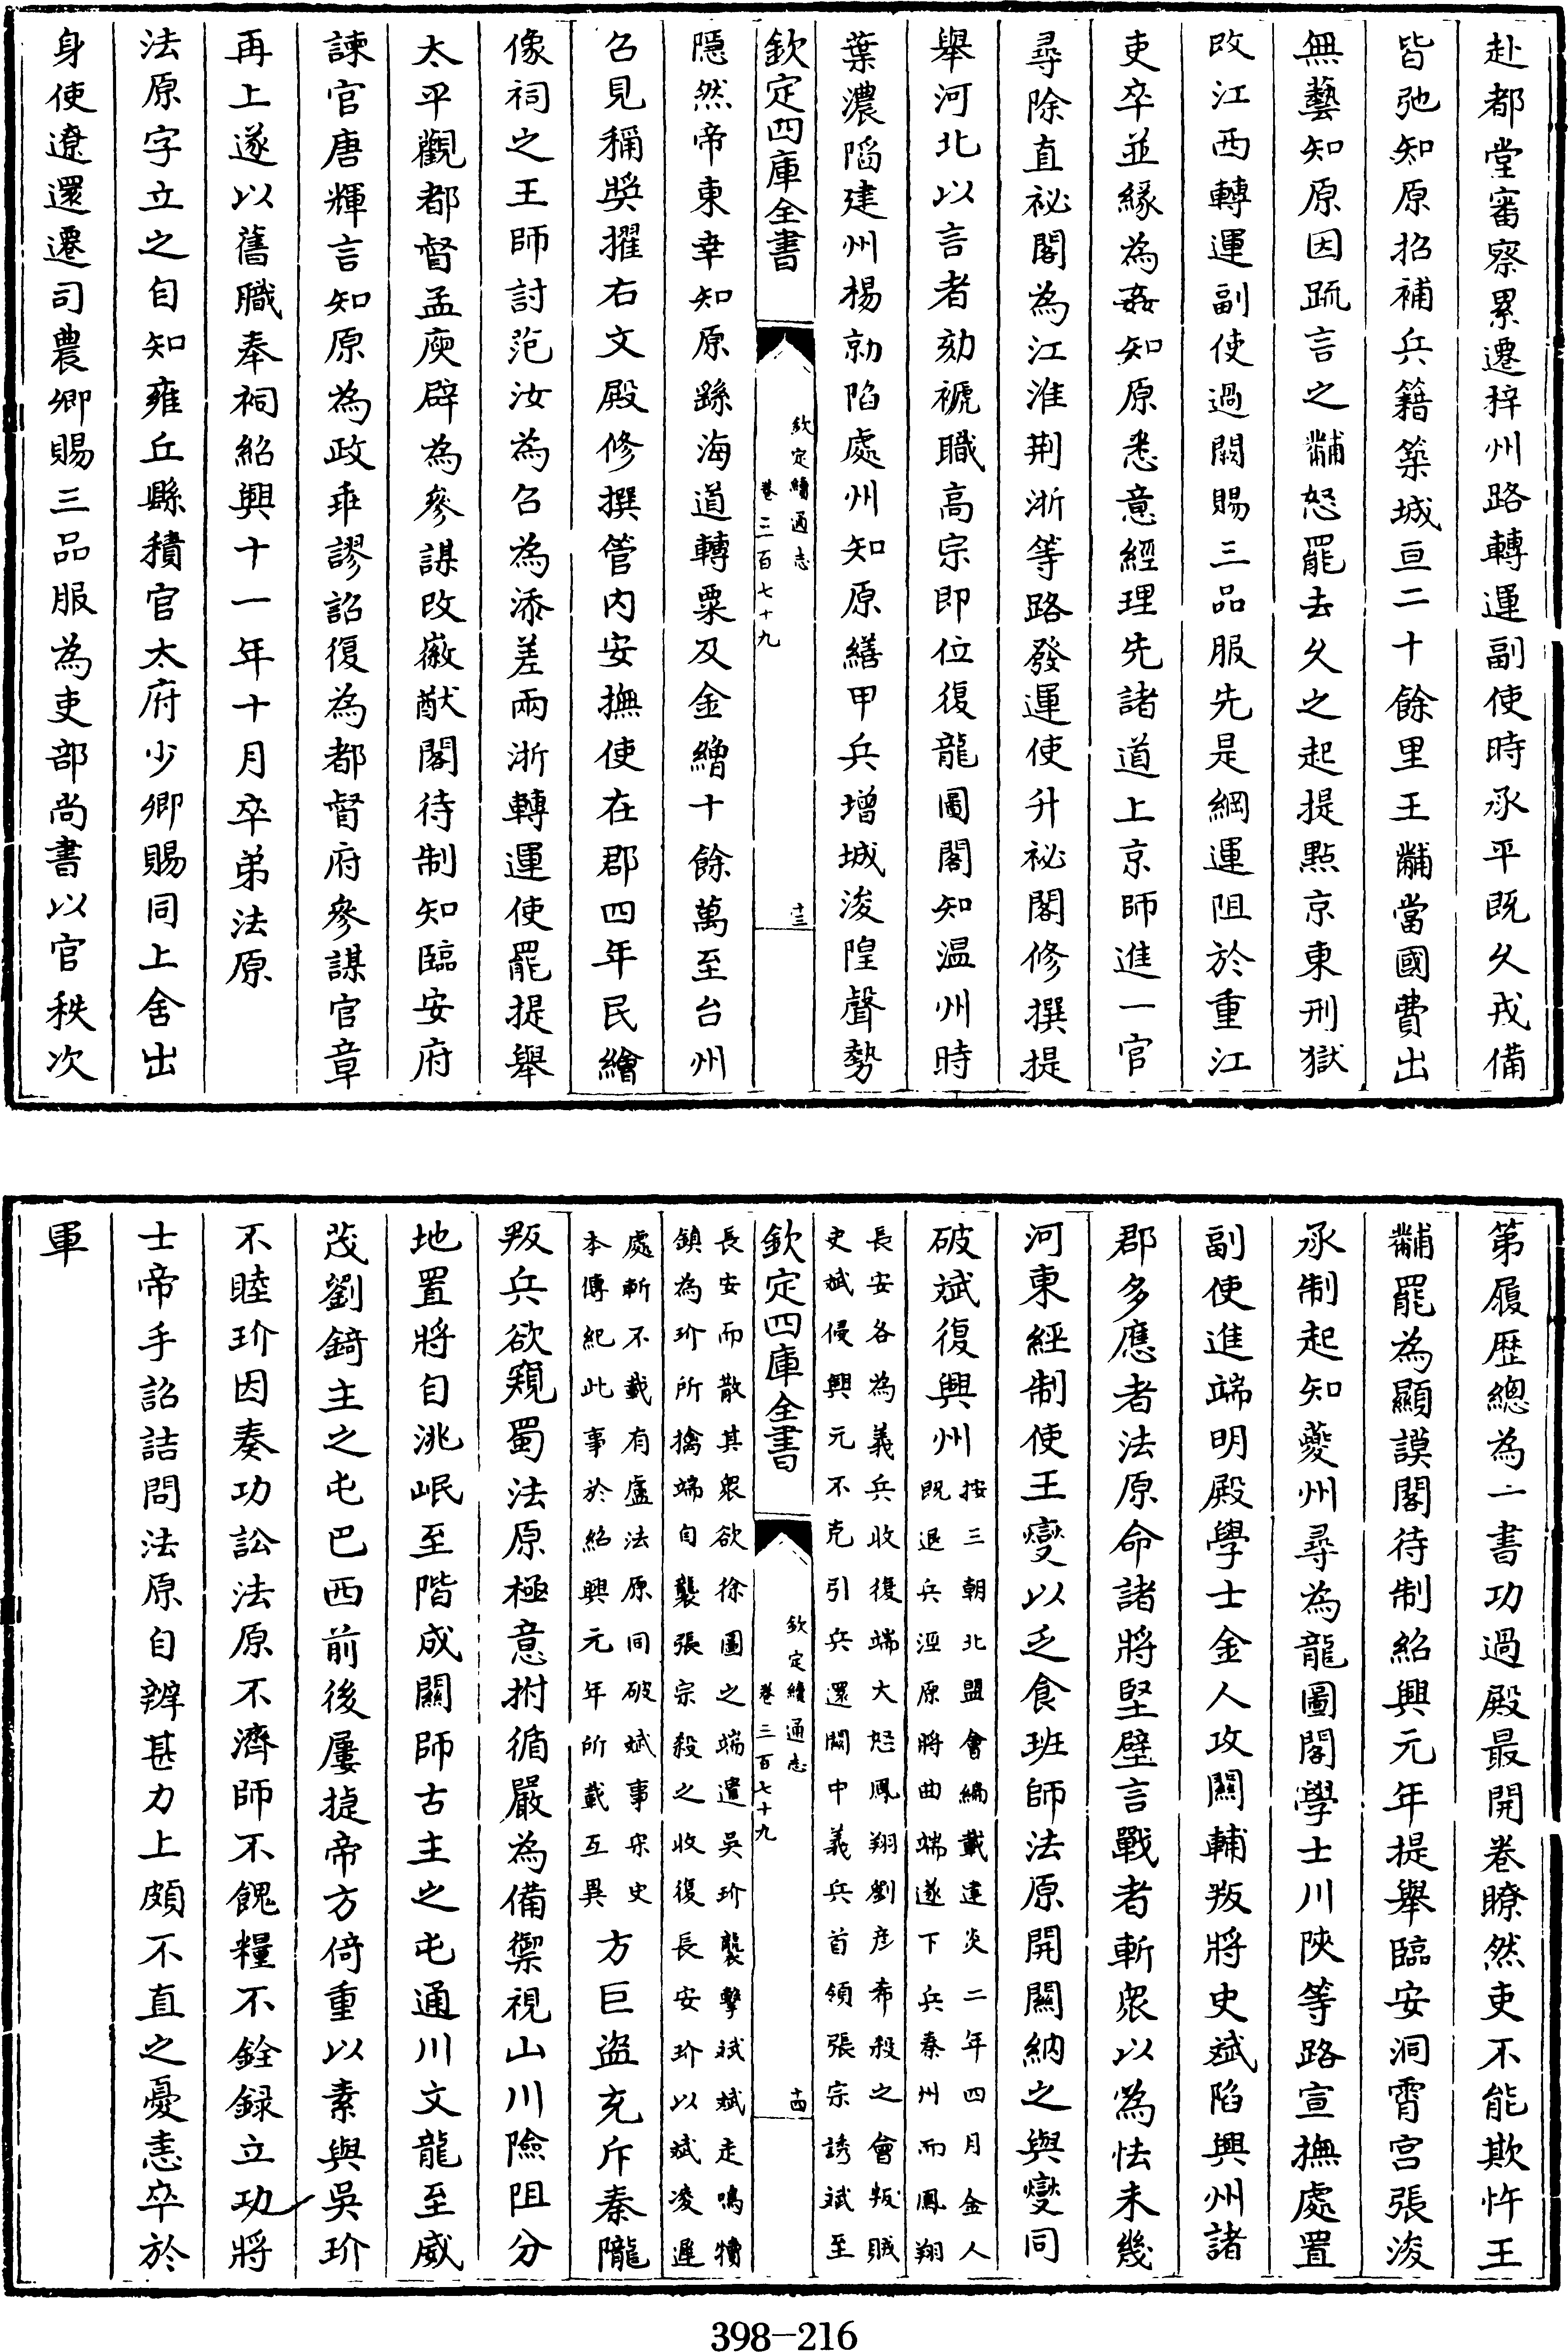 赴都堂審察累遷梓州路轉運副使時承平既久戎備
皆弛知原招補兵籍築城亘二十餘里王黼當國費出
無藝知原因疏言之黼怒罷去久之起提點京東刑獄
改江西轉運副使過闕賜三品服先是綱運阻於重江
吏卒並緣為姦知原悉意經理先諸道上京師進一官
尋除直祕閣為江淮荆浙等路發運使升祕閣修撰提
舉河北以言者劾褫職高宗即位復龍圖閣知温州時
葉濃陷建州楊勍陷處州知原繕甲兵增城浚隍聲勢
欽定四庫全書
欽定續通志
卷三百七十九
十三
隱然帝東幸知原繇海道轉粟及金繒十餘萬至台州
召見稱奬擢右文殿修撰管內安撫使在郡四年民繪
像祠之王師討范汝為召為添差兩浙轉運使罷提舉
太平觀都督孟庾辟為參謀改徽猷閣待制知臨安府
諫官唐輝言知原為政乖謬詔復為都督府參謀官章
再上遂以舊職奉祠紹興十一年十月卒弟法原
法原字立之自知雍丘縣積官太府少卿賜同上舍出
身使遼還遷司農卿賜三品服為吏部尚書以官秩次
第履歷總為一書功過殿最開卷瞭然吏不能欺忤王
黼罷為顯謨閣待制紹興元年提舉臨安洞霄宮張浚
承制起知夔州尋為龍圖閣學士川陝等路宣撫處置
副使進端明殿學士金人攻關輔叛將史斌陷興州諸
郡多應者法原命諸將堅壁言戰者斬衆以為怯未幾
河東經制使王燮以乏食班師法原開關納之與燮同
破斌復興州
按三朝北盟會編載建炎二年四月金人
既退兵涇原將曲端遂下兵秦州而鳳翔
長安各為義兵收復端大怒鳳翔劉彦希殺之會叛賊
史斌侵興元不克引兵還關中義兵首領張宗誘斌至
欽定四庫全書
欽定續通志
卷三百七十九
十四
長安而散其衆欲徐圖之端遣吳玠襲擊斌斌走鳴犢
鎮為玠所擒端自襲張宗殺之收復長安玠以斌凌遲
處斬不載有盧法原同破斌事宋史
本傳紀此事於紹興元年所載互異
方巨盜充斥秦隴
叛兵欲窺蜀法原極意拊循嚴為備禦視山川險阻分
地置將自洮岷至階成關師古主之屯通川文龍至威
茂劉錡主之屯巴西前後屢捷帝方倚重以素與吳玠
不睦玠因奏功訟法原不濟師不餽糧不銓録立功將
士帝手詔詰問法原自辨甚力上頗不直之憂恚卒於
軍
398-216